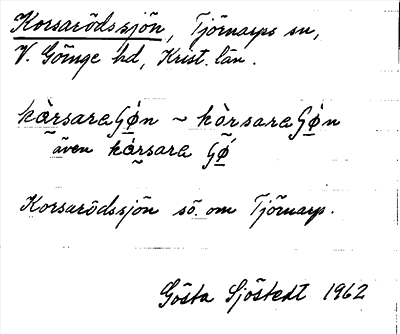 Korsarödssjön, Tjörnarps sn,
V. Göinge hd, Krist. län.
kòrsareʃǿn ~ kòrsareʃǿn
även kòrsare ʃǿ
Korsarödssjön sö. om Tjörnarp.
Gösta Sjöstedt 1962